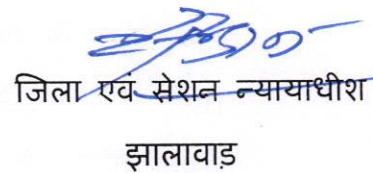 जिला एवं सेशन न्यायाधीश
झालावाड़